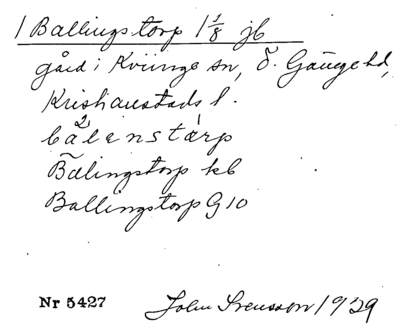 1 Ballingstorp 1 1/8 jb
gård i Kviinge sn, Ö. Göinge hd,
Kristianstads l.
bálenstàrp
Bälingstorp kb
Ballingstorp G 10
Nr 5427 John Svensson 1929